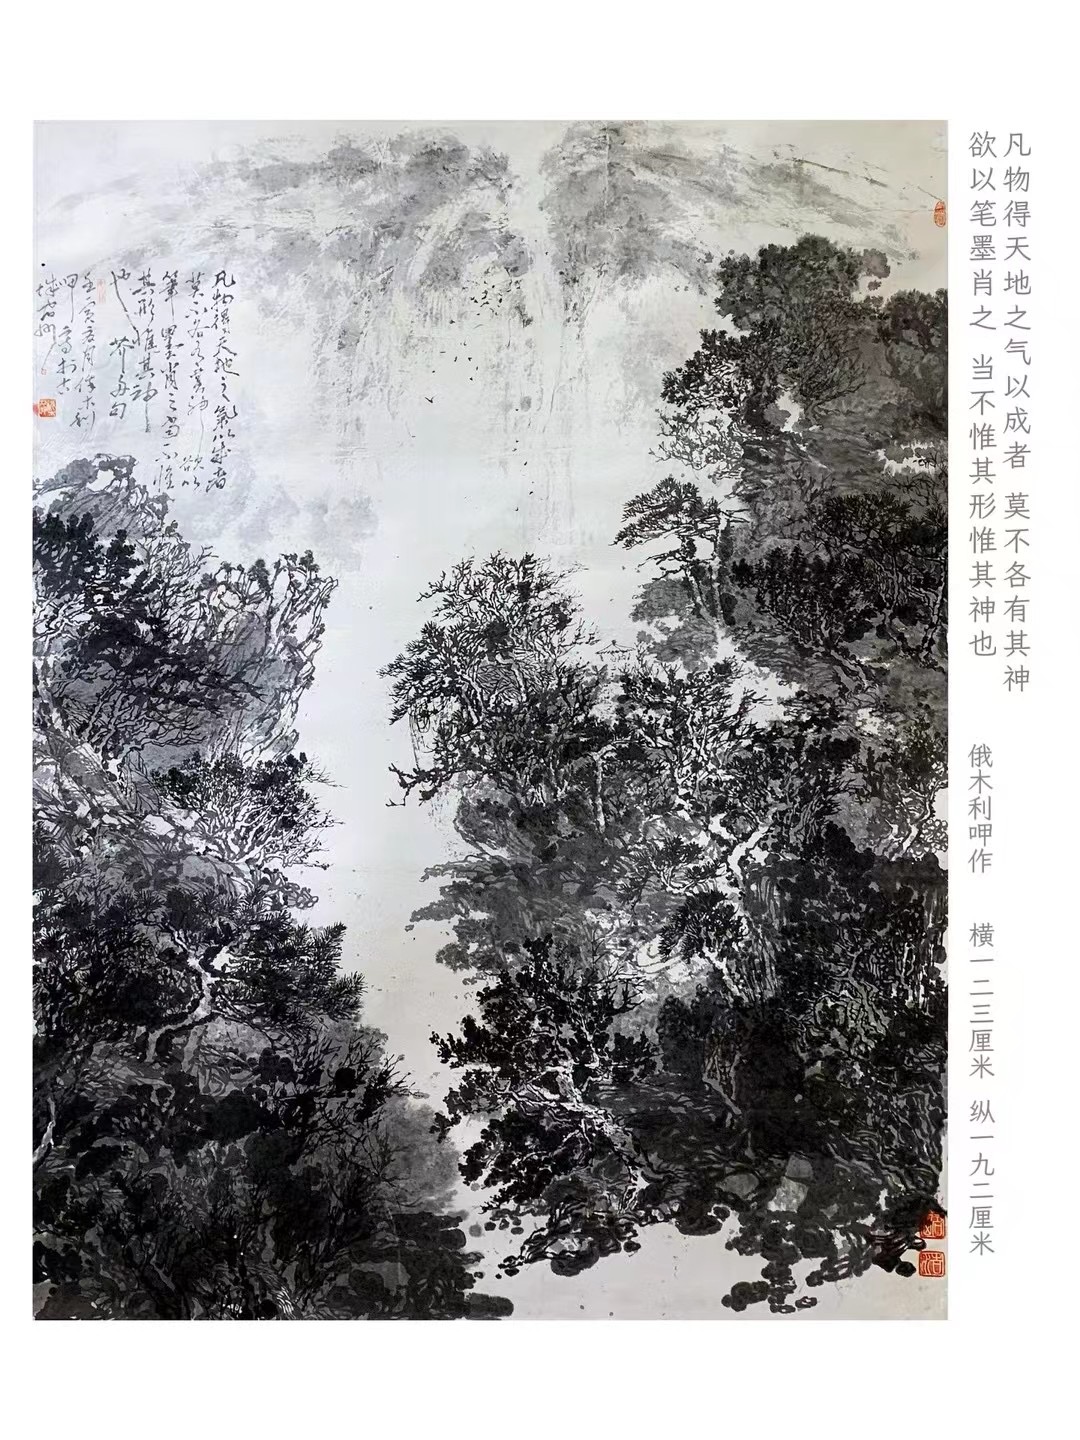 凡物得天地之气以成者 莫不各有其神
欲以笔墨肖之 当不惟其形惟其神也
俄木利呷作 横一二三厘米 纵一九二厘米
凡物得天地之氣以成者
莫不各有其神 欲以
筆墨肖之 當不惟
其形惟其神
也
壬寅 月俄木利
呷